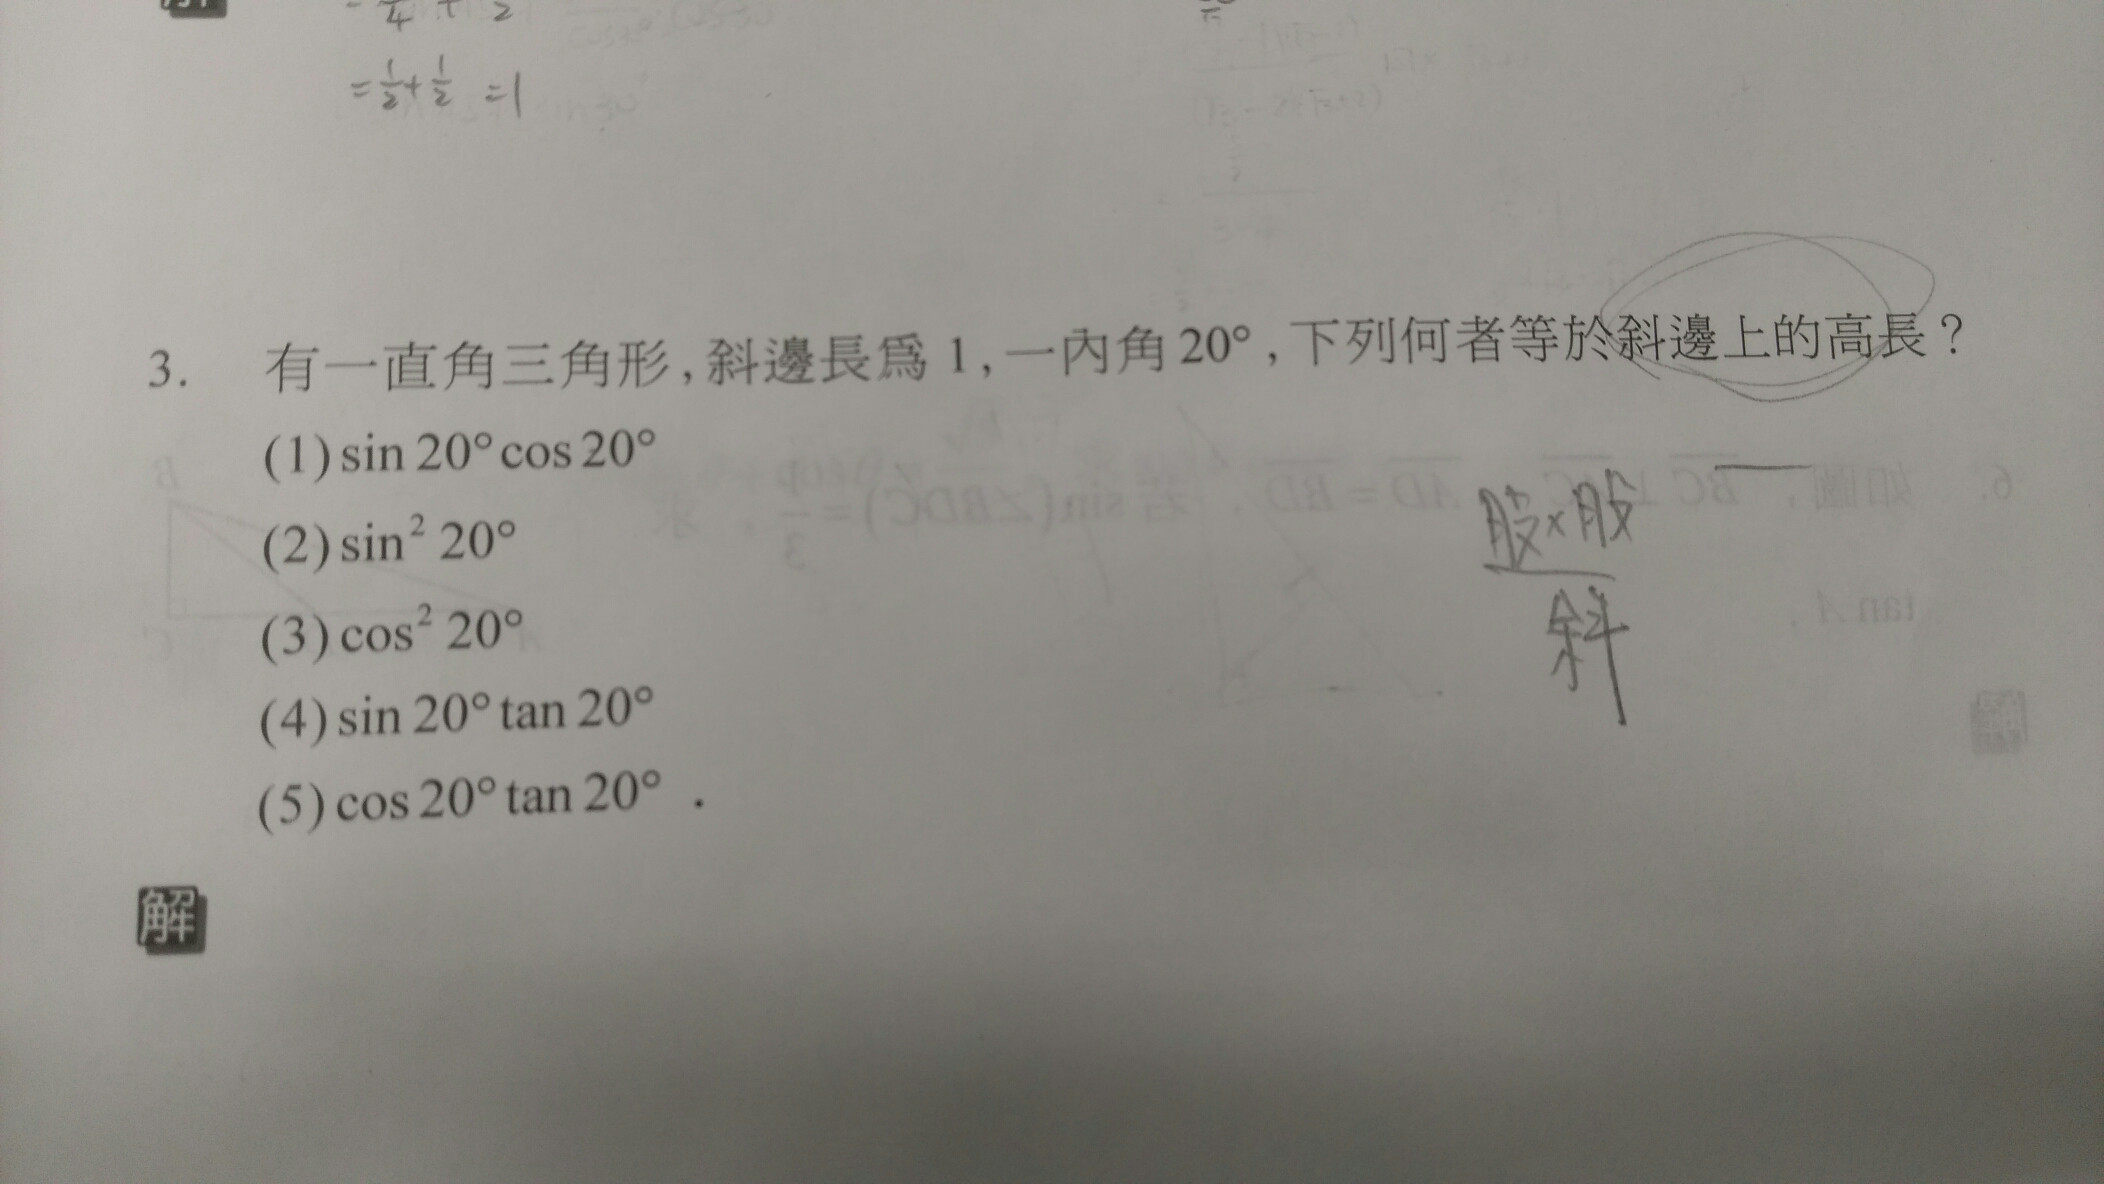 = 1/2 + 1/2 = 1
3. 有一直角三角形,斜邊長爲 1,一內角 20°,下列何者等於斜邊上的高長?
(1) sin 20° cos 20°
(2) sin² 20°
股×股
(3) cos² 20°
斜
(4) sin 20° tan 20°
(5) cos 20° tan 20° .
解